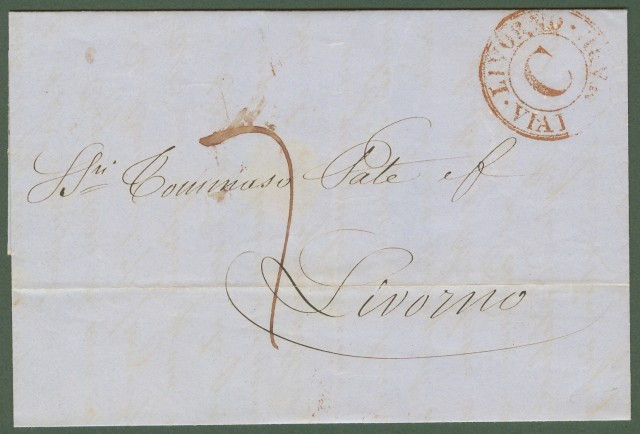 LIVORNO
VIA
C
7
SSri Tommaso Pate e f
Livorno